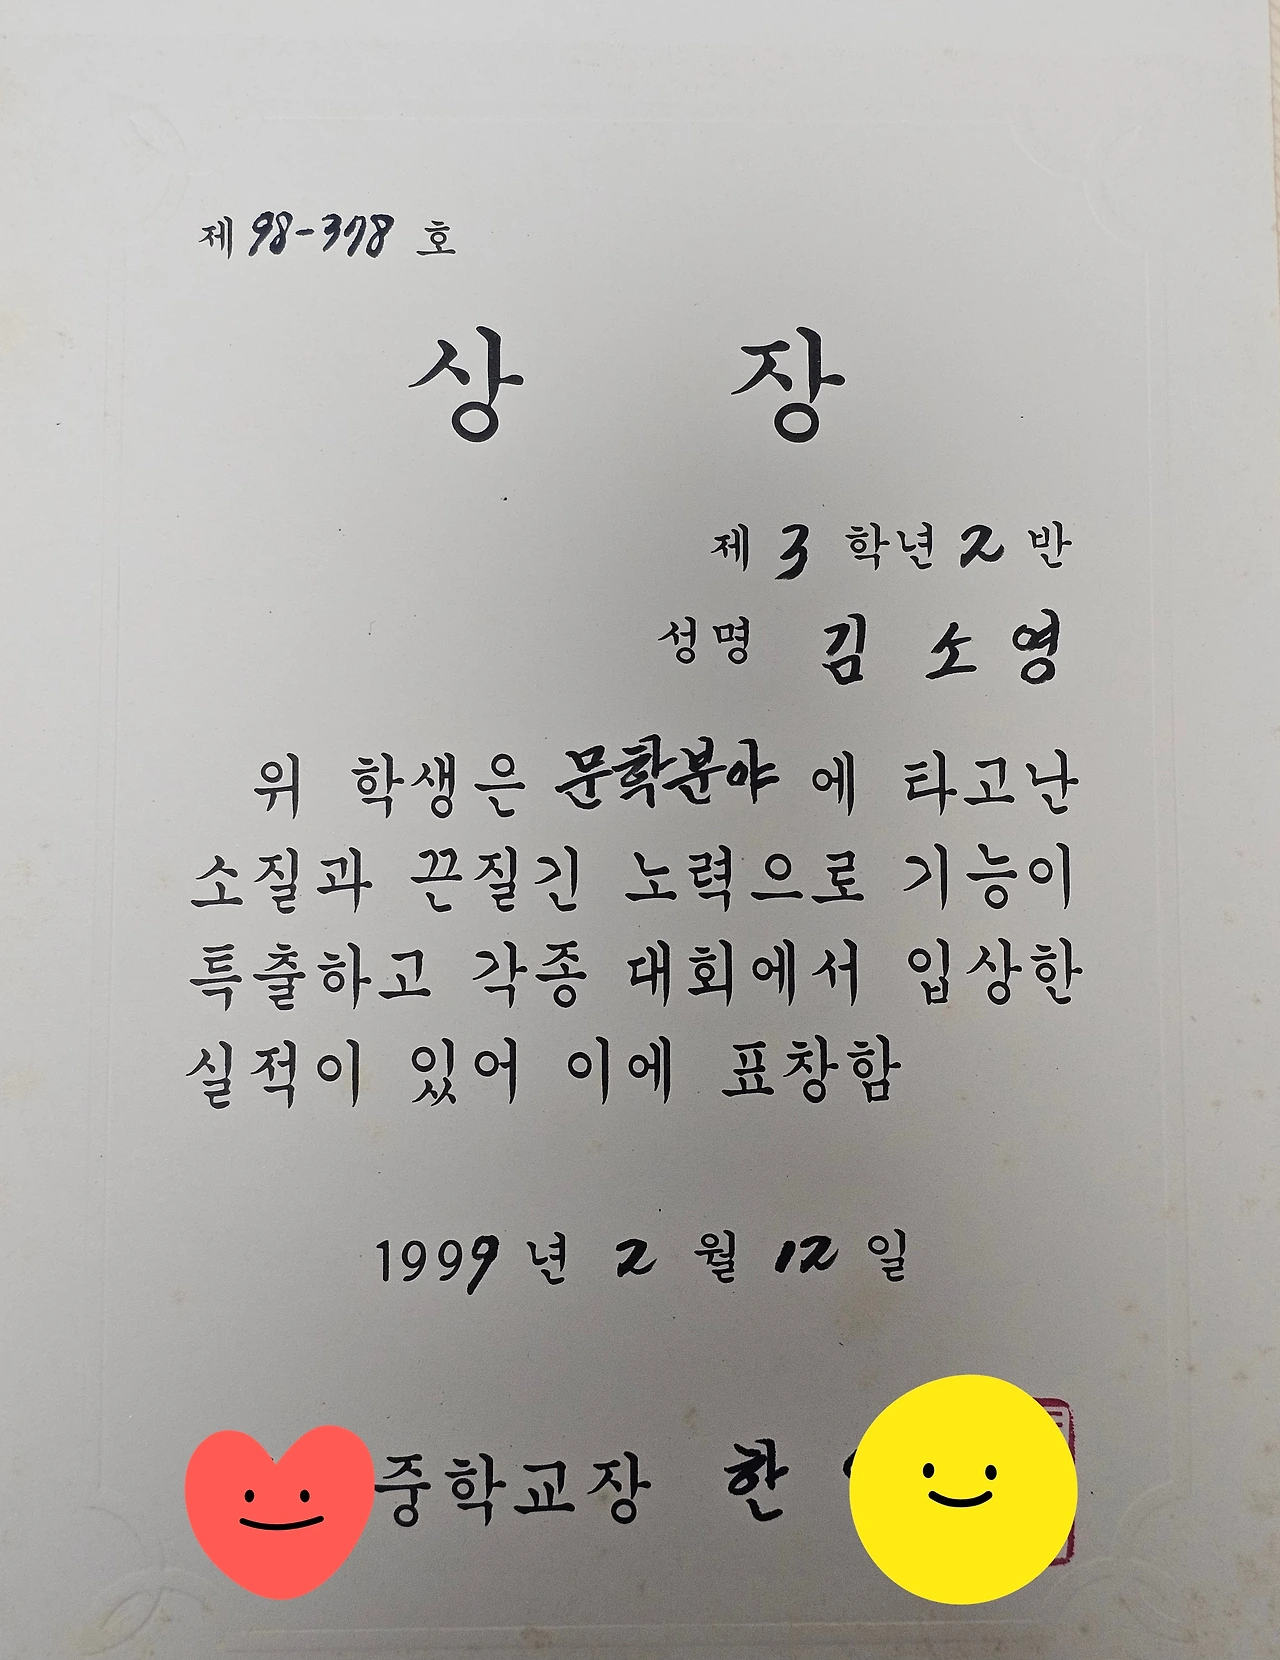 제 98-378 호
상 장
제 3 학년 2 반
성명 김 소 영
위 학생은 문학분야 에 타고난
소질과 끈질긴 노력으로 기능이
특출하고 각종 대회에서 입상한
실적이 있어 이에 표창함
1999 년 2 월 12 일
중학교장 한